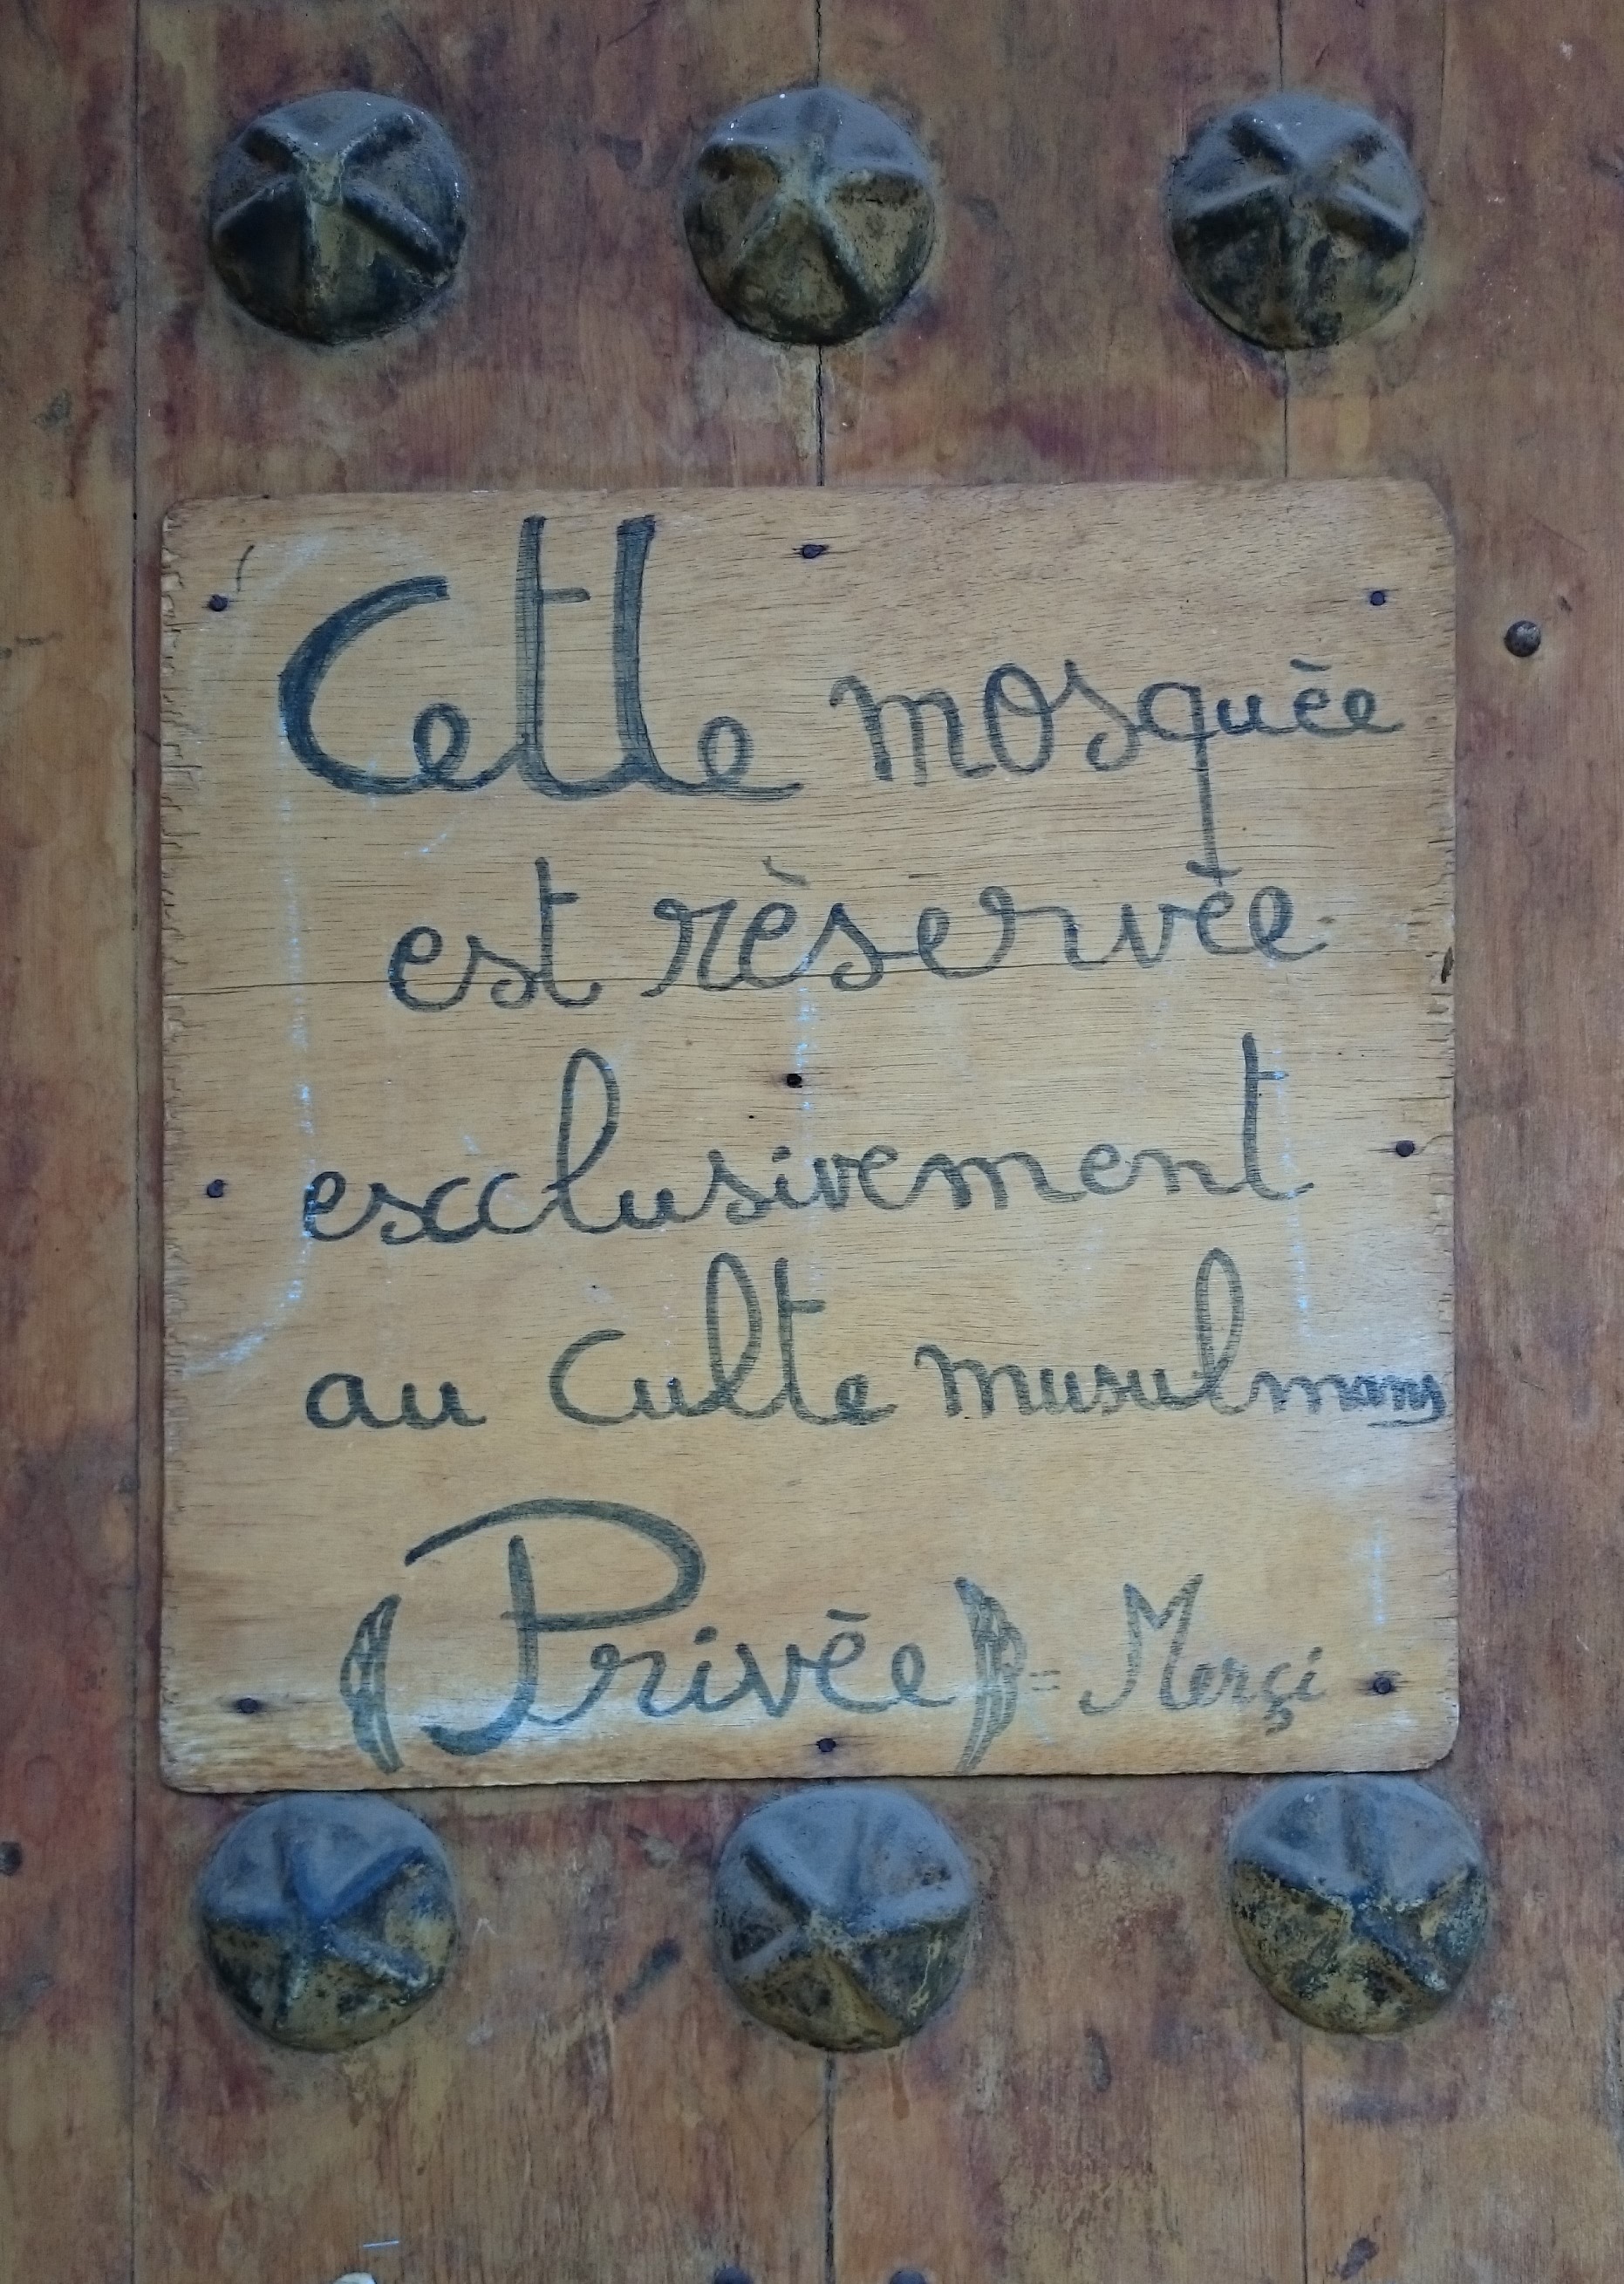 Cette mosquèe
est rèservèe
exclusivement
au culte musulmans
(Privèe) = Merçi